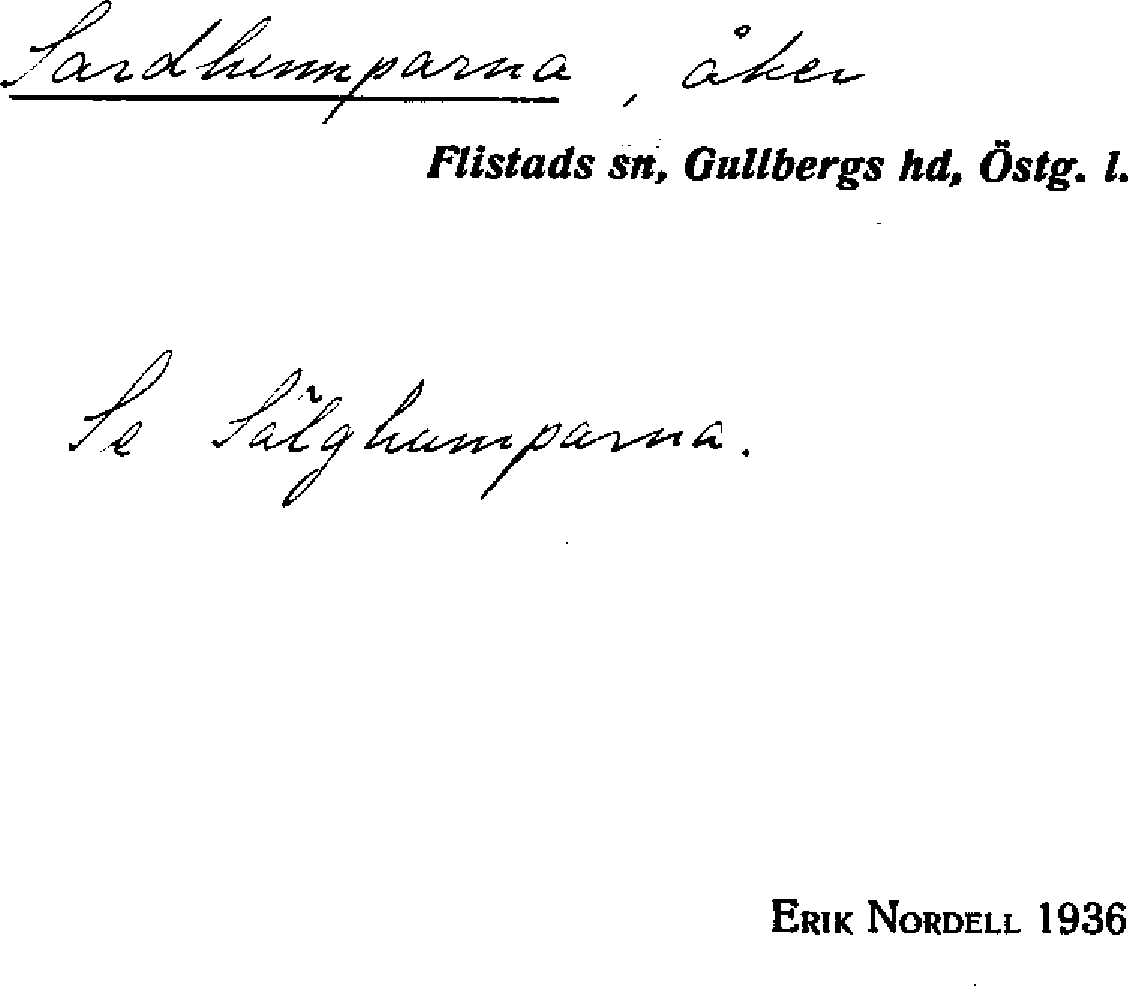 Sardhumparna, åker
Flistads sn, Gullbergs hd, Östg. l.
Se Sälghumparna.
ERIK NORDELL 1936